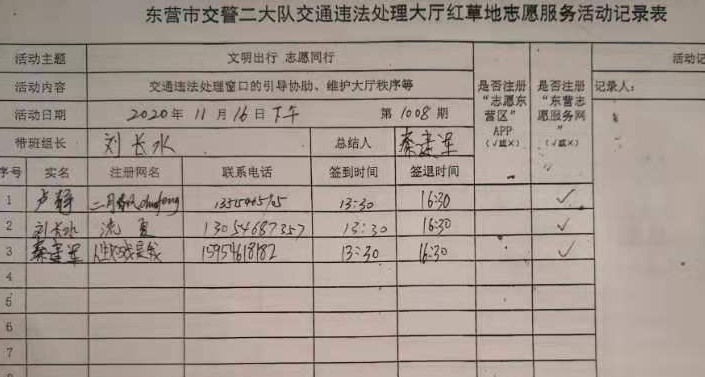 东营市交警二大队交通违法处理大厅红草地志愿服务活动记录表
活动主题 文明出行 志愿同行
活动内容 交通违法处理窗口的引导协助、维护大厅秩序等
活动日期 2020年 11月16日下午 第1008期
带班组长 刘长水 总结人 秦建军
是否注册“志愿东营区”APP（√或×）
是否注册“东营志愿服务网”（√或×）
活动记
记录人：
序号 实名 注册网名 联系电话 签到时间 签退时间
1 卢静 二月春风 13:30 16:30 ✓
2 刘长水 流夏 13054687357 13:30 16:30 ✓
3 秦建军 15954618182 13:30 16:30 ✓
4
5
6
7